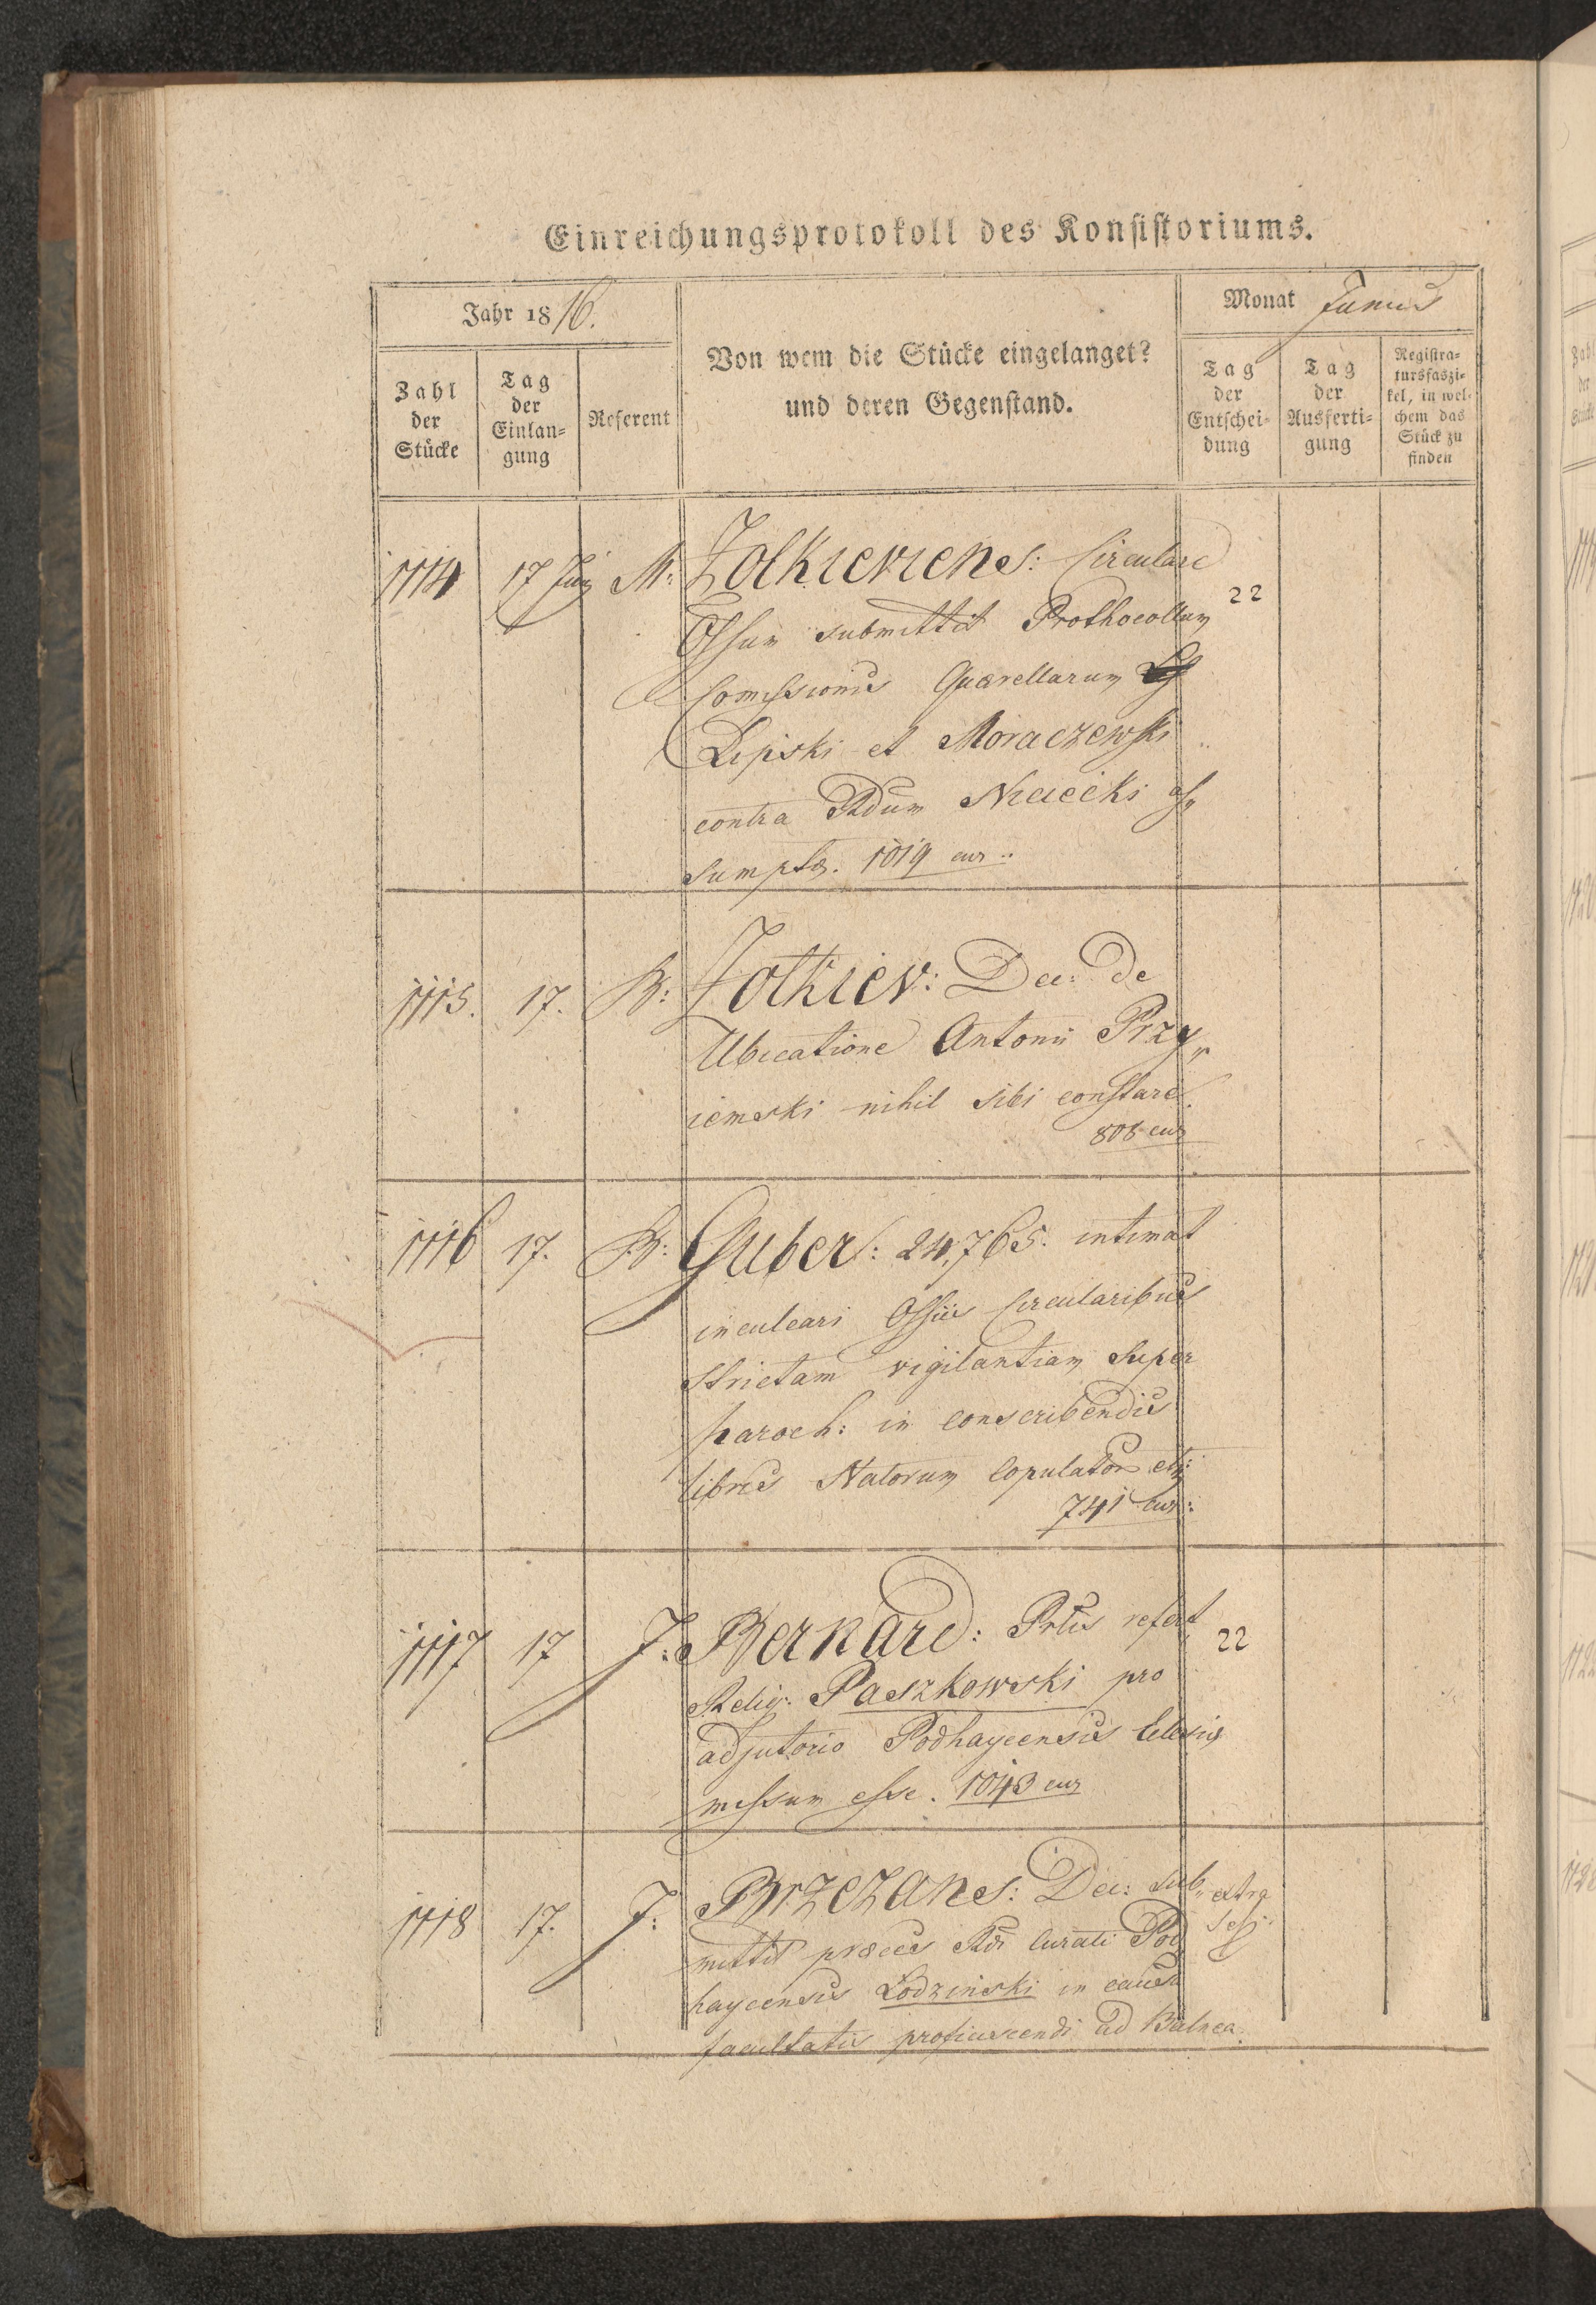 Einreichungsprotokoll des Konsistoriums.
Jahr 1816.
Monat Junius
Zahl der Stücke
Tag der Einlangung
Referent
Von wem die Stücke eingelanget?
und deren Gegenstand.
Tag der Entscheidung
Tag der Ausfertigung
Registratursfaszikel, in welchem das Stück zu finden
1114 17 Juny M: Zolkieviens: Circulare 22
Offum submittit Prothocollum
Comissionis Quærellarum
Lipski et Moraczewski
contra Rdum Nicecki as„
sumpta. 1019 cur..
1115. 17. B: Zolkiev: Dec: de
Ubicatione Antonii Przy„
iemski nihil sibi constare.
808 cur
1116 17. B: Guber: 24,765. intimat
inculcari Offiis Circularibus
strictam vigilantiam super
paroch: in conscribendis
libris Natorum Copulator etc:
741 cur:
1117 17 J: Bernard: Prlis refert 22
Relig: Paszkowski pro
adjutorio Podhaycensis Eclesiæ
missum esse. 1043 cur
1118 17. J: Brzezans: Dec: sub„ extra
mittit præces Rdi Curati Pod sess:
haycensis Lodzinski in causa
facultatis proficiscendi ad Balnea.